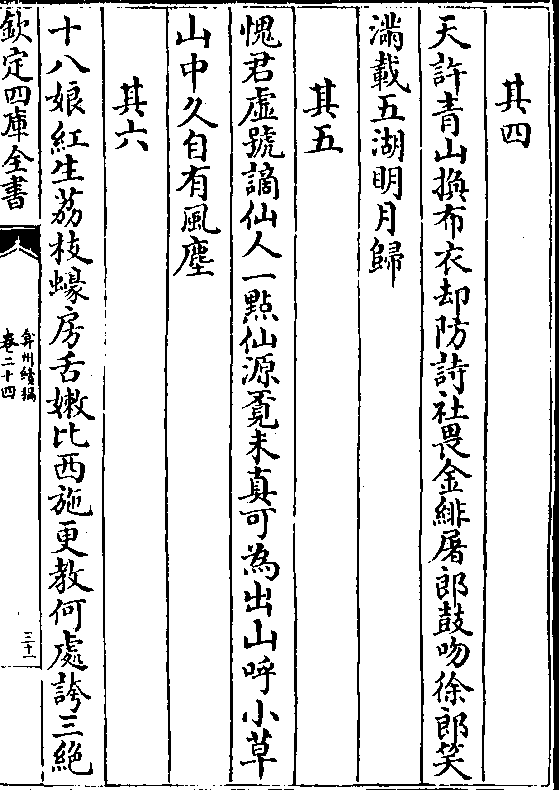 其四
天許青山換布衣却防詩社畏金緋屠郎鼓吻徐郎笑
滿載五湖明月歸
其五
愧君虛號謫仙人一點仙源覔未真可為出山呼小草
山中久自有風塵
其六
十八娘紅生荔枝蠔房舌嫩比西施更教何處誇三絶
欽定四庫全書
弇州續稿
卷二十四
三十一